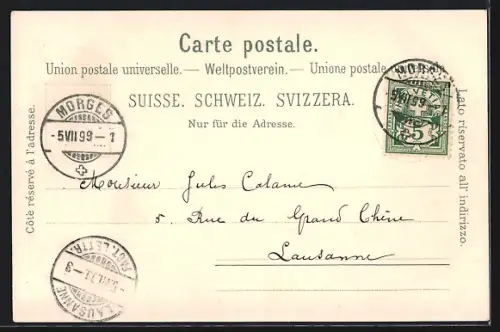 Carte postale.
Union postale universelle. — Weltpostverein. — Unione postale universale.
SUISSE. SCHWEIZ. SVIZZERA.
Nur für die Adresse.
Côté réservé à l'adresse.
Lato riservato all' indirizzo.
MORGES
-5 VII 99 - 1
MORGES
-5 VII 99
5
Monsieur Jules Calame
5. Rue du Grand Chêne
Lausanne
LAUSANNE
FACT. LETTR.